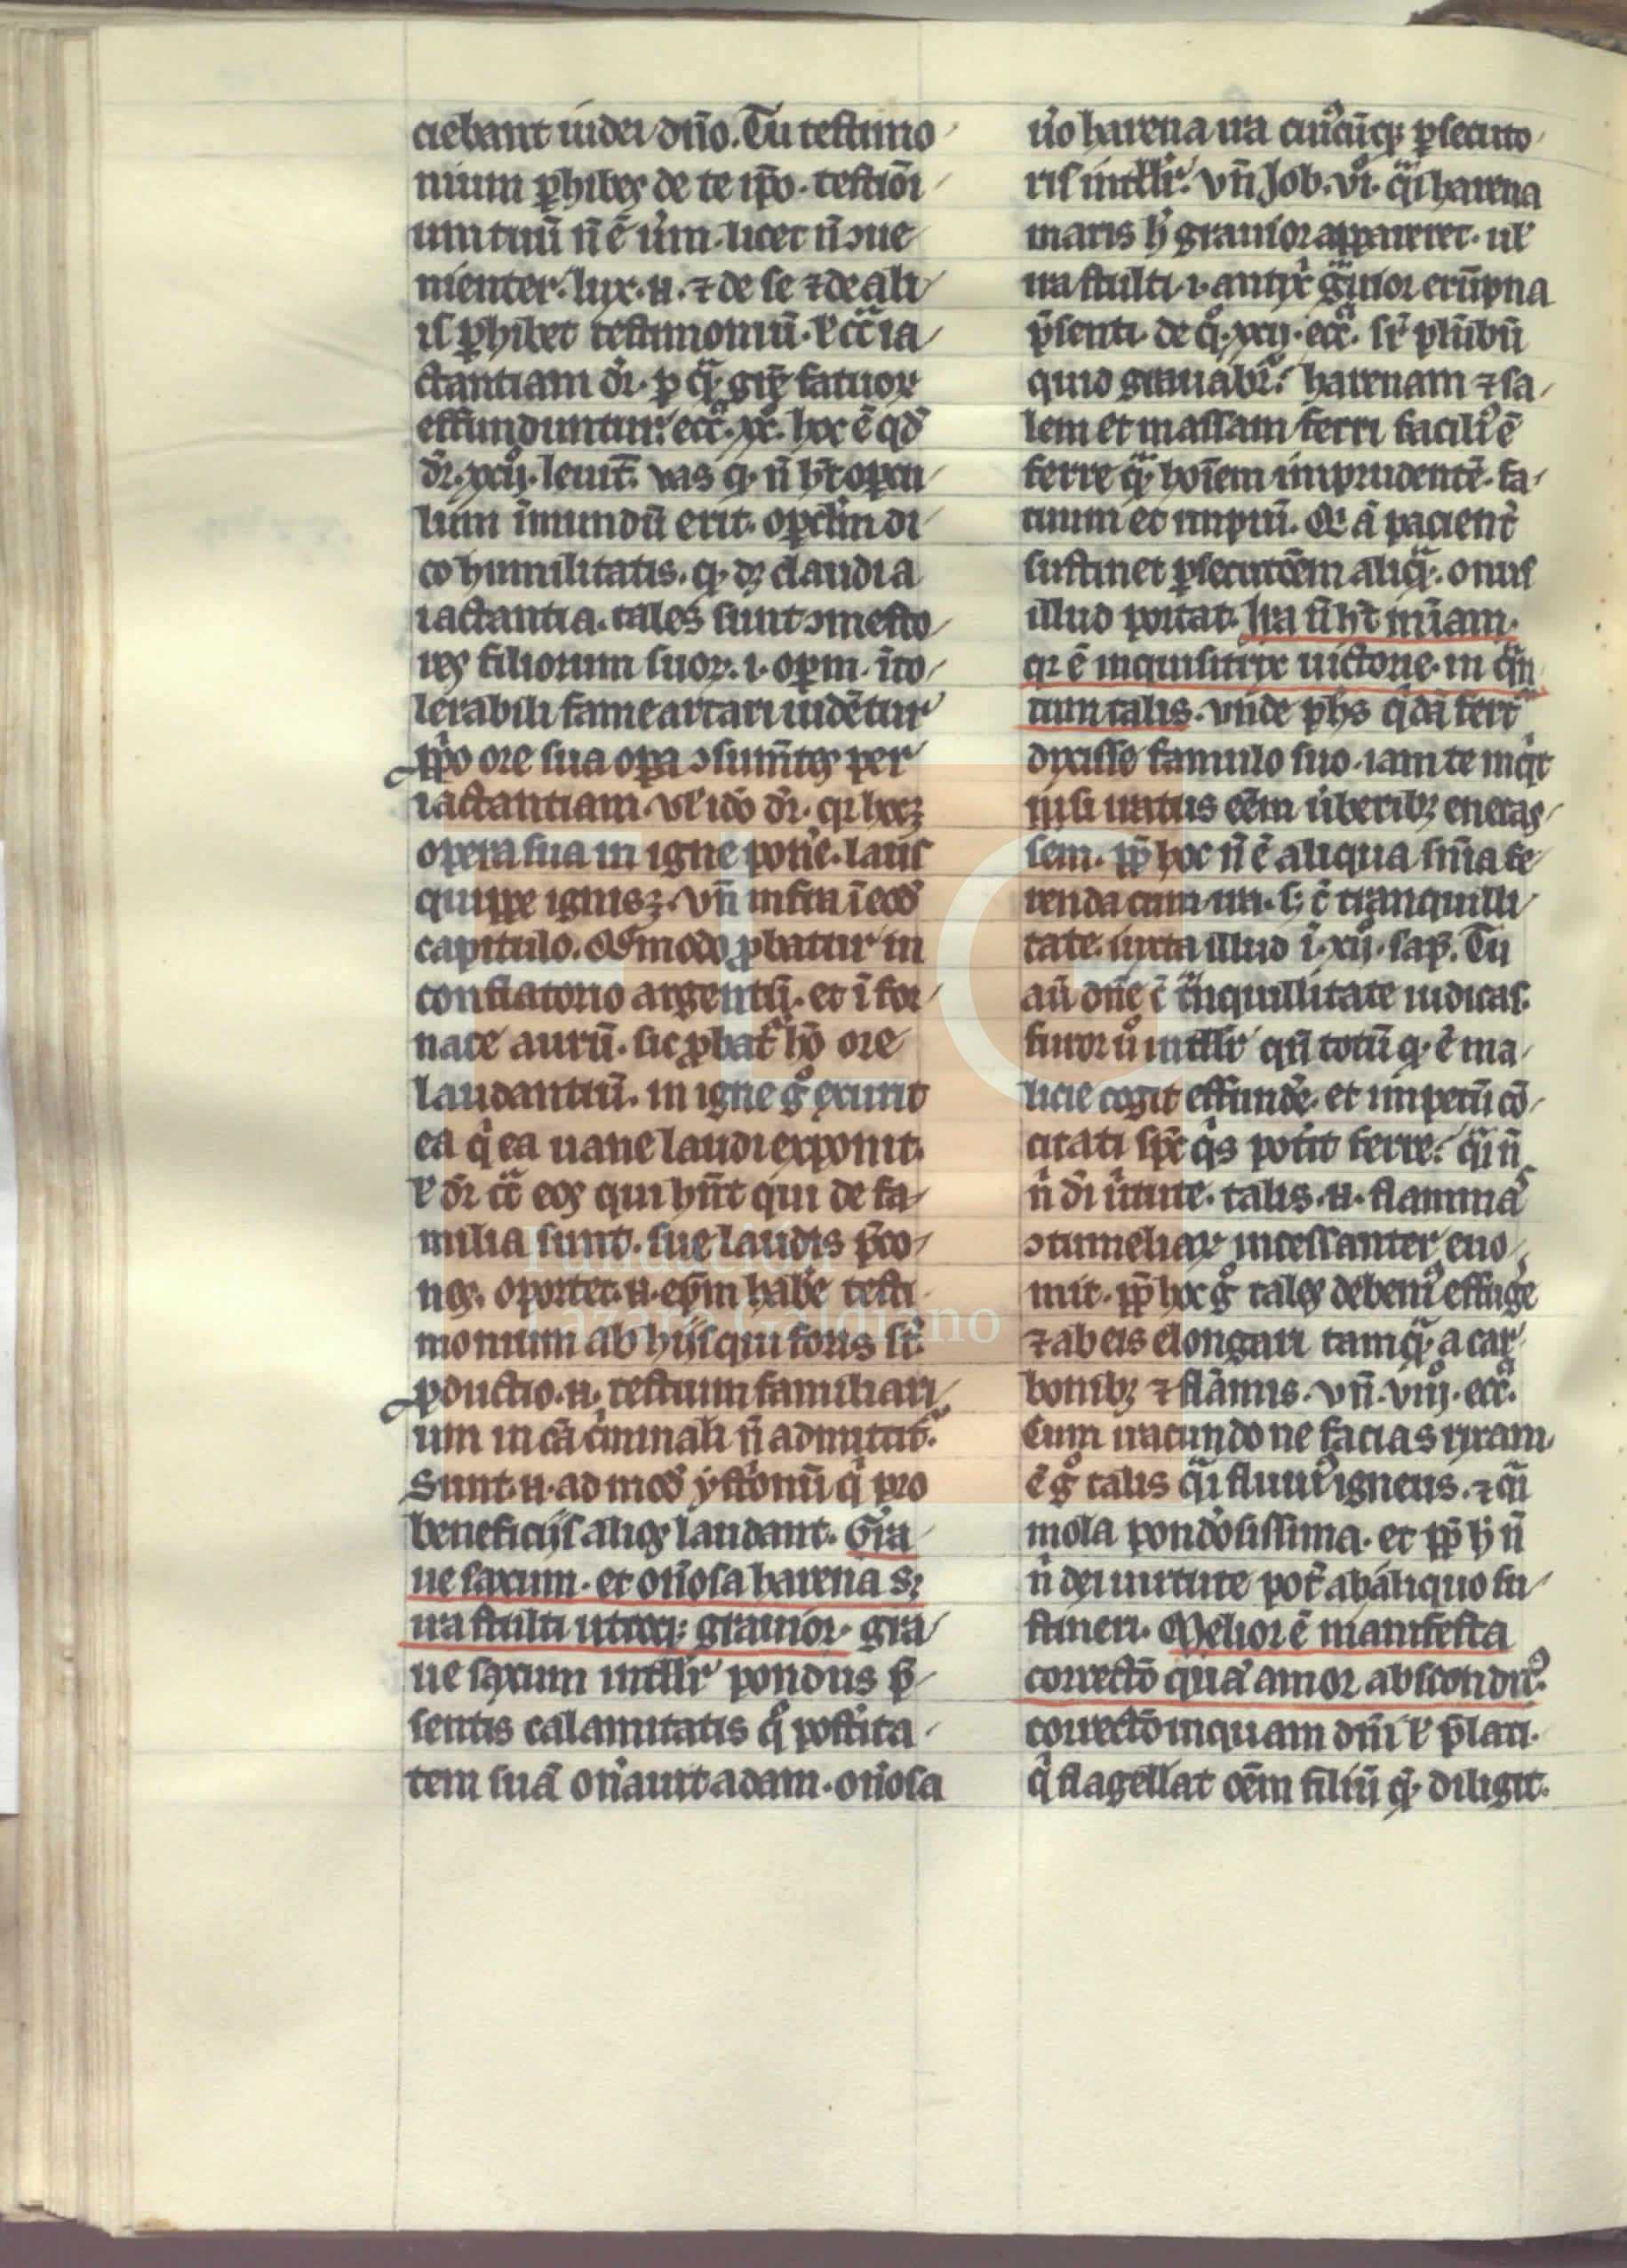 ciebant iudei dn̄o. Tu testimo
nium ꝑhibes de te ip̄o. testiōi
um tuū n̄ ē ủm. licet n̄ ꝯue
nienter. lux. n. ⁊ de se ⁊ de ali
is ꝑhibet testimoniū. ł cc̄ ia
ctantiam dr̄. ꝑ qᷓ. gr̄e fatuoꝝ
effunduntur. ecc̄. xx. hoc ē qd̄
dr̄. leuit̄. vas q. n̄ hr̄ opcu
lum īmundū erit. opcl̄m di
co humilitatis. q. dꝫ claudi a
iactantia. tales sunt ꝯmesto
res filiorum suoꝝ. i. oꝑm. īto
lerabili fame artari uidētur
ꝓpo ore sua oꝑa ꝯsum̄tes per
iactantiam. vł ido dr̄. qꝛ hoꝫ
opera sua in igne pone. laus
quippe ignis ꝫ. vn̄ infra ī eod̄
capitulo. Qd̄modo ꝓbatur in
conflatorio argentū. et ī for
nace aurū. sic ꝓbat̄ hō ore
laudantiū. in igne gͦ exurit
ea qͥ ea uane laudi exponit.
ł dr̄ cc̄ eos qui hn̄t qui de fa
milia sunt. sue laudis p̄co
nes. oportet. n. ep̄m habe testi
monium ab hijs qui foris st̄.
ꝓductio. n. testium familiari
um in cā cͥminali n̄ admittit̄.
Sunt. n. ad mod̄ ystͥonū qͥ pro
beneficijs aliqͦs laudant. Gra
ue saxum. et on̄osa harena sꝫ
ira stulti utroqꝫ grauior. gra
ue saxum intll̄r pondus p̄
sentis calamitatis qͦ postͥita
tem suā on̄auit adam. on̄osa
ůo harena ira cuiꝰcūqꝫ ꝑsecuto
ris intll̄r. vn̄ Job. vi. qͣi harena
maris hͦ grauior appareret. uł
ira stulti. i. antixͥ gͣuior erūpna
p̄senti. de qͦ. xxij. ecc̄. sr̄ plūbū
quid grauabr̄. harenam ⁊ sa
lem et massam ferri faciliꝰ ē
ferre qͣ hoīem imprudentē. fa
tuum et impiū. Qi ā pacient̄
sustinet ꝑsecutōem aliqͣ. onus
illud portat. Ira n̄ hr̄ mīam.
qꝛ ē inquisitrix uictorie. in qͣn
tum talis. vnde phs qͥdā fert̄
dixisse famulo suo. iam te inqͥt
nisi iratus eēm uberibꝫ enecas
sem. ꝓp̄ hoc n̄ ē aliqua sn̄ia fe
renda cum ira. sꝫ c̄ tranquilli
tate. iuxta illud ī. xij. sap. Tu
aū dn̄e c̄ tͣnquillitate iudicas.
furor ů intll̄r qn̄ totū q. ē ma
licie cogit effunde. et impetū cō
citati spc̄ qͥs potit ferre. qͣi n̄
n̄ di ůtute. talis. n. flammā
ꝯtumeliaꝝ incessanter euo
mit. ꝓp̄ hoc gͦ tales debemꝰ effuge
⁊ ab eis elongari tamqͣ. a car
bonibꝫ ⁊ flāmis. vn̄. viij. ecc̄.
Cum iracundo ne facias rixam.
ē gͦ talis qͣi fluuiꝰ igneus. ⁊ qͣi
mola pondosissima. et ꝓp̄ hͦ n̄
n̄ dei uirtute pot̄ ab aliquo su
stineri. Melior ē manifesta
correctō quā amor absconditꝰ.
correctō inquam dn̄i ł p̄lati.
qͥ flagellat oēm filiū qͣ. diligit.
Fundación
Lázaro Galdiano